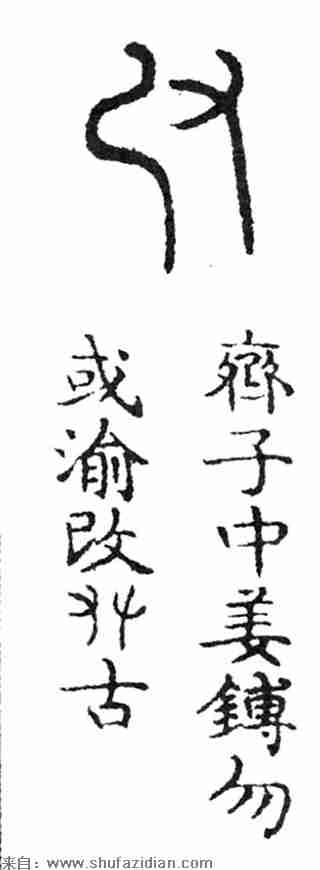 齊子中姜鎛勿
或渝改古
来自：www.shufazidian.com